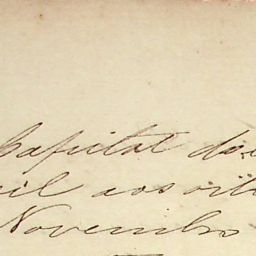 Capital do
il aos oit
Novembro